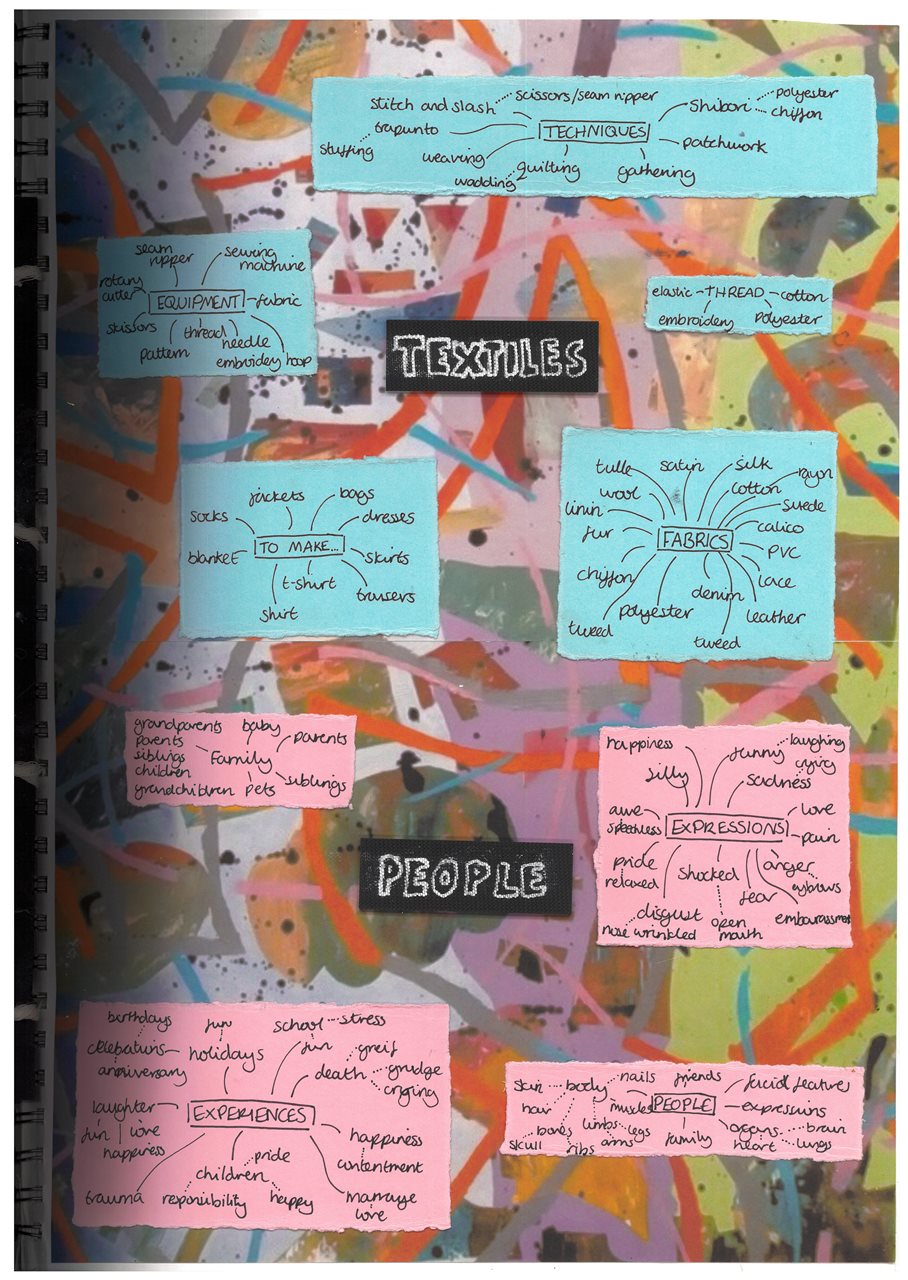 stitch and slash
scissors/seam ripper
trapunto
stuffing
TECHNIQUES
shibori
polyester
chiffon
patchwork
weaving
wadding
quilting
gathering
seam
ripper
sewing
machine
rotary
cutter
EQUIPMENT
fabric
scissors
thread
needle
pattern
embroidey hoop
elastic
THREAD
cotton
embroidery
Polyester
TEXTILES
jackets
bags
socks
dresses
TO MAKE...
blanket
skirts
t-shirt
trousers
shirt
tulle
satin
silk
rayon
wool
cotton
linin
suede
fur
FABRICS
calico
PVC
chiffon
lace
denim
polyester
leather
tweed
tweed
grandparents
baby
parents
parents
siblings
Family
children
siblings
grandchildren
pets
happiness
funny
laughing
crying
silly
sadness
awe
speechless
EXPRESSIONS
love
pain
pride
relaxed
shocked
anger
eybrows
fear
disgust
nose wrinkled
open
mouth
PEOPLE
birthdays
fun
school
stress
celebrations
holidays
fun
greif
anniversary
death
grudge
crying
laughter
EXPERIENCES
fun
love
happiness
happiness
contentment
pride
children
trauma
responsibility
happy
marrage
love
skin
body
nails
friends
facial features
hair
muscles
PEOPLE
expressions
bones
limbs
legs
arms
organs
brain
skull
ribs
family
heart
lungs